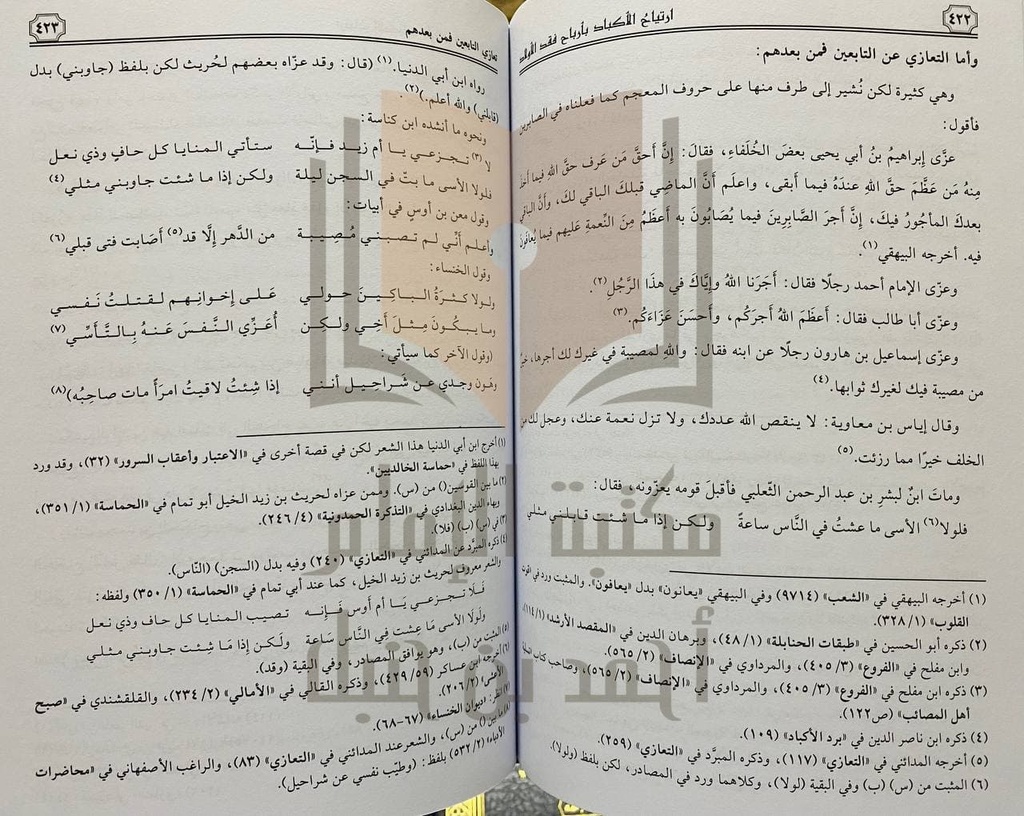 ٤٢٢
ارتياح الأكباد بأرباح فقد الأولاد
وأما التعازي عن التابعين فمن بعدهم:
وهي كثيرة لكن نُشير إلى طرف منها على حروف المعجم كما فعلناه في الصابرين
فأقول:
عزَّى إبراهيمُ بنُ أبي يحيى بعضَ الخُلَفاءِ، فقالَ: إِنَّ أحقَّ مَن عَرف حقَّ اللهِ فيما أخذ
مِنهُ مَن عَظَّمَ حقَّ اللهِ عندَهُ فيما أبقى، واعلَم أَنَّ الماضِي قبلكَ الباقي لكَ، وأنَّ الباقي
بعدكَ المأجُورُ فيكَ، إِنَّ أجرَ الصَّابِرينَ فيما يُصَابُونَ به أعظَمُ مِنَ النِّعمةِ عَليهِم فيما يُعافَونَ
فيه. أخرجه البيهقي(١).
وعزّى الإمام أحمد رجلًا فقال: أَجَرَنا اللهُ وإيَّاكَ في هذَا الرَّجُلِ(٢).
وعزّى أبا طالب فقال: أَعظَمَ اللهُ أجرَكُم، وأحسَنَ عَزَاءَكُم.(٣)
وعزّى إسماعيل بن هارون رجلًا عن ابنه فقال: والله لمصيبة في غيرك لك أجرها، خير
من مصيبة فيك لغيرك ثوابها.(٤)
وقال إياس بن معاوية: لا ينقص الله عددك، ولا تزل نعمة عنك، وعجل لك من
الخلف خيرًا مما رزئت.(٥)
وماتَ ابنٌ لبشرِ بن عبد الرحمن الثَّعلبي فأقبلَ قومه يعزّونه، فقال:
فلولا(٦) الأسى ما عشتُ في النَّاس ساعةً ولكن إذا ما شئت قابلني مثلي
(١) أخرجه البيهقي في «الشعب» (٩٧١٤) وفي البيهقي «يعانون» بدل «يعافون». والمثبت ورد في «قوت
القلوب» (١/ ٣٢٨).
(٢) ذكره أبو الحسين في «طبقات الحنابلة» (١/ ٤٨)، وبرهان الدين في «المقصد الأرشد» (١/ ١١٤)،
وابن مفلح في «الفروع» (٣/ ٤٠٥)، والمرداوي في «الإنصاف» (٢/ ٥٦٥).
(٣) ذكره ابن مفلح في «الفروع» (٣/ ٤٠٥)، والمرداوي في «الإنصاف» (٢/ ٥٦٥)، وصاحب كتاب «تسلية
أهل المصائب» (ص١٢٢).
(٤) ذكره ابن ناصر الدين في «برد الأكباد» (١٠٩).
(٥) أخرجه المدائني في «التعازي» (١١٧)، وذكره المبرَّد في «التعازي» (٢٥٩).
(٦) المثبت من (س) (ب) وفي البقية (لولا)، وكلاهما ورد في المصادر، لكن بلفظ (ولولا).
تعازي التابعين فمن بعدهم
٤٢٣
رواه ابن أبي الدنيا.(١) (قال: وقد عزّاه بعضهم لحُريث لكن بلفظ (جاوبني) بدل
(قابلني) والله أعلم.)(٢).
ونحوه ما أنشده ابن كناسة:
لا(٣) تجزعي يا أم زيد فإنّه ستأتي المنايا كل حافٍ وذي نعل
فلولا الأسى ما بتّ في السجن ليلة ولكن إذا ما شئت جاوبني مثلي(٤)
وقول معن بن أوس في أبيات:
وأعلم أنّي لم تصبني مُصِيبة من الدَّهر إلَّا قد(٥) أصَابت فتى قبلي(٦)
وقول الخنساء:
ولولا كثرَةُ الباكِينَ حولي عَلى إخوانِهم لقتلتُ نَفسي
وما يبكُونَ مِثلَ أخِي ولكِن أُعزِّي النَّفسَ عَنهُ بِالتَّأسِّي(٧)
(وقول الآخر كما سيأتي:
وهَّون وجدي عن شَراحِيل أنني إذا شِئتُ لاقيتُ امرَأً مات صاحِبُه)(٨)
(١) أخرج ابن أبي الدنيا هذا الشعر لكن في قصة أخرى في «الاعتبار وأعقاب السرور» (٣٢)، وقد ورد
بهذا اللفظ في «حماسة الخالديين».
(٢) ما بين القوسين() من (س). وممن عزاه لحريث بن زيد الخيل أبو تمام في «الحماسة» (١/ ٣٥١)،
وبهاء الدين البغدادي في «التذكرة الحمدونية» (٤/ ٢٤٦).
(٣) في (س) (ب) (فلا).
(٤) ذكره المبرَّد عن المدائني في «التعازي» (٢٤٠) وفيه بدل (السجن) (النَّاس).
والشعر معروف لحريث بن زيد الخيل، كما عند أبي تمام في «الحماسة» (١/ ٣٥٠) ولفظه:
فَلَا تجزعي يَا أم أوس فَإِنَّه تصيب المنايا كل حاف وذي نعل
ولَولَا الأسى مَا عِشت فِي النَّاس سَاعَة ولكِن إذا مَا شئت جاوبني مثلي
(٥) المثبت من (ب)، وهو يوافق المصادر، وفي البقية (وقد).
(٦) أخرجه ابن عساكر (٥٩/ ٤٢٩)، وذكره القالي في «الأمالي» (٢/ ٢٣٤)، والقلقشندي في «صبح
الأعشى» (٢/ ٢٠٦).
(٧) انظر: «ديوان الخنساء» (٦٧-٦٨).
(٨) ما بين () من (س)، والشعر عند المدائني في «التعازي» (٨٣)، والراغب الأصفهاني في «محاضرات
الأدباء» (٢/ ٥٣٢) بلفظ: (وطيّب نفسي عن شراحيل).
مكتبة الإمام
أحمد بن حنبل